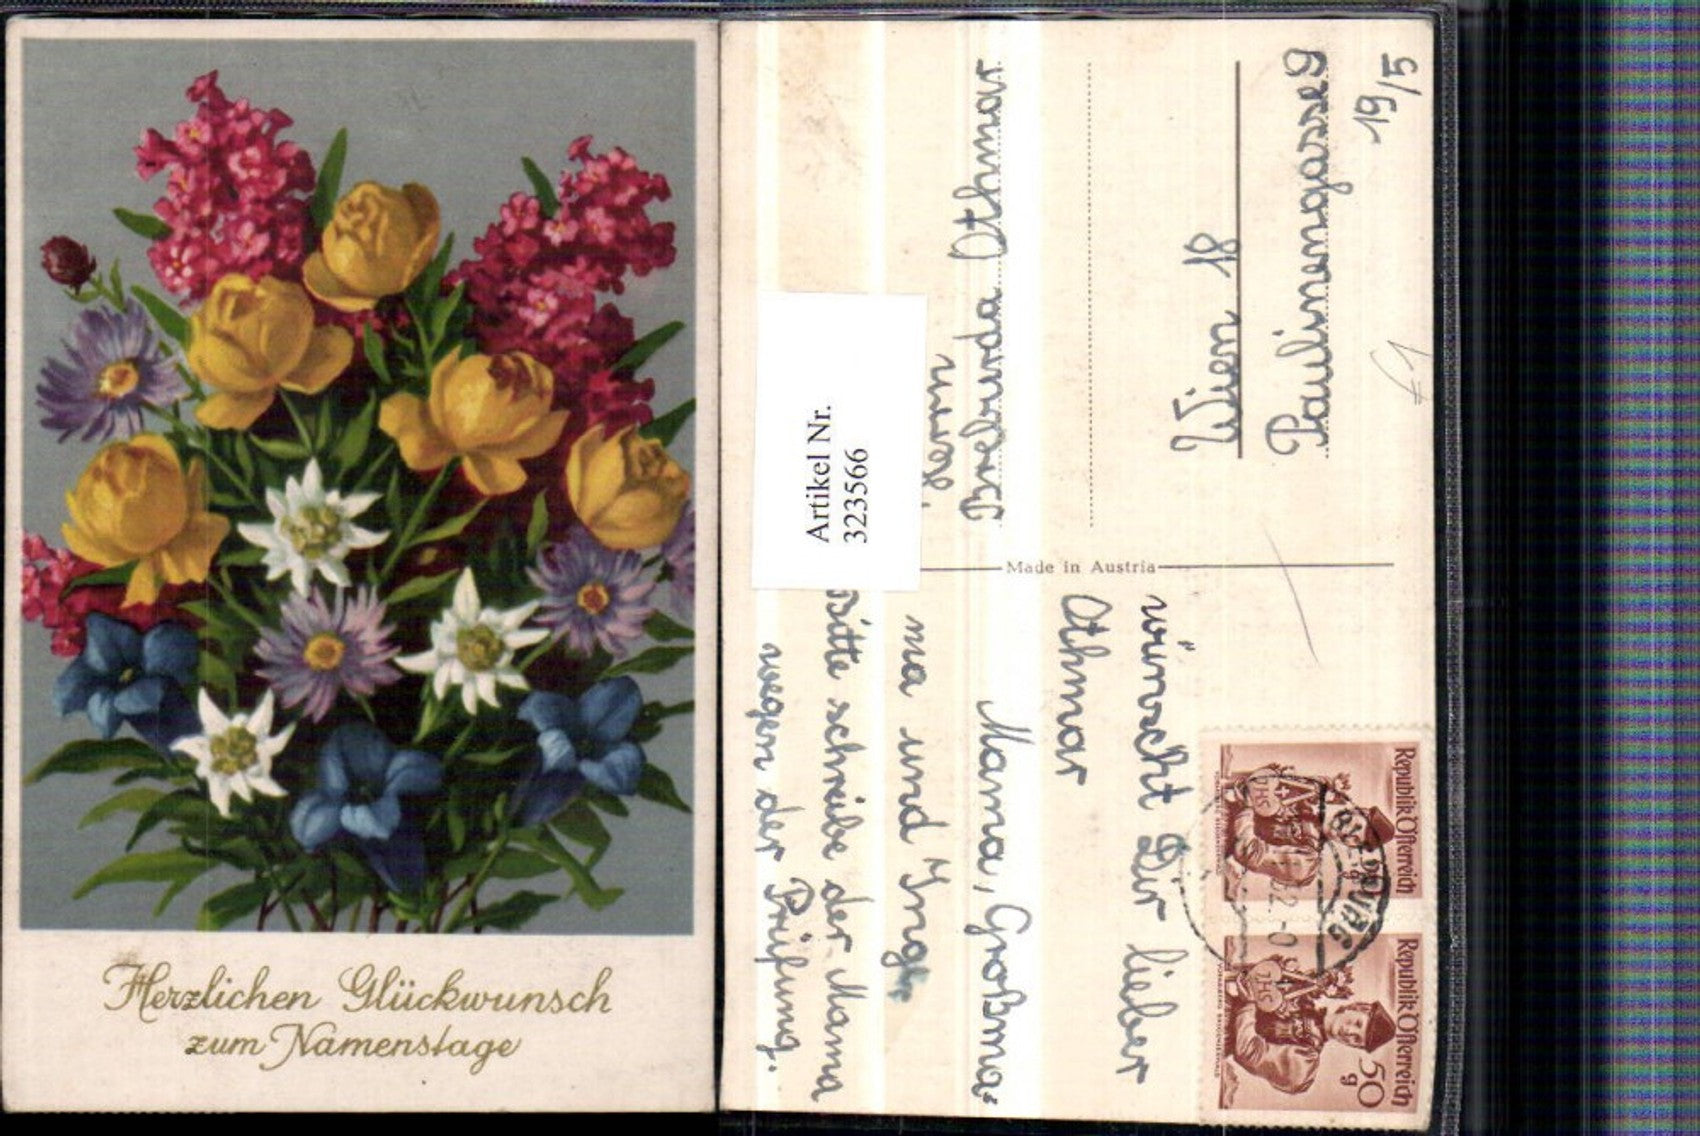 Herzlichen Glückwunsch
zum Namenstage
Artikel Nr.
323566
wünscht Dir lieber
Othmar
Mama, Großma-
ma und Inge
Bitte schreibe der Mama
wegen der Prüfung.
Made in Austria
Herrn
Othmar
Wien 18
Paulinengasse 9
19/5
€1
Republik Österreich
Republik Österreich
50
g